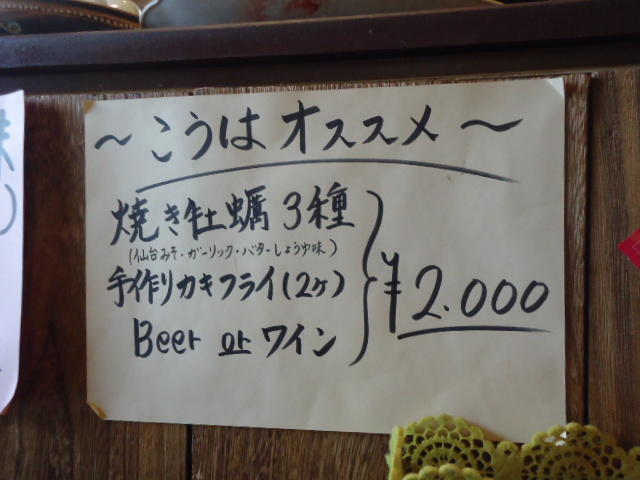 ～こうはオススメ～
焼き牡蠣3種
(仙台みそ・ガーリック・バターしょうゆ味)
手作りカキフライ(2ヶ)
Beer or ワイン
¥2.000
味